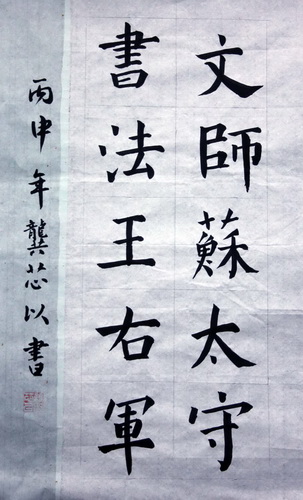 文師蘇太守
書法王右軍
丙申年龔芯以書